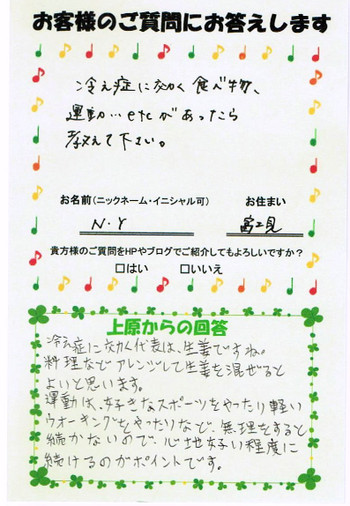 お客様のご質問にお答えします
冷え症に効く食べ物、
運動…etcがあったら
教えて下さい。
お名前(ニックネーム・イニシャル可)
お住まい
N.Y
富士見
貴方様のご質問をHPやブログでご紹介してもよろしいですか?
□はい □いいえ
上原からの回答
冷え症に効く代表は、生姜ですね。
料理などアレンジして生姜を混ぜると
よいと思います。
運動は、好きなスポーツをやったり軽い
ウオーキングをやったりなど、無理をすると
続かないので、心地好い程度に
続けるのがポイントです。